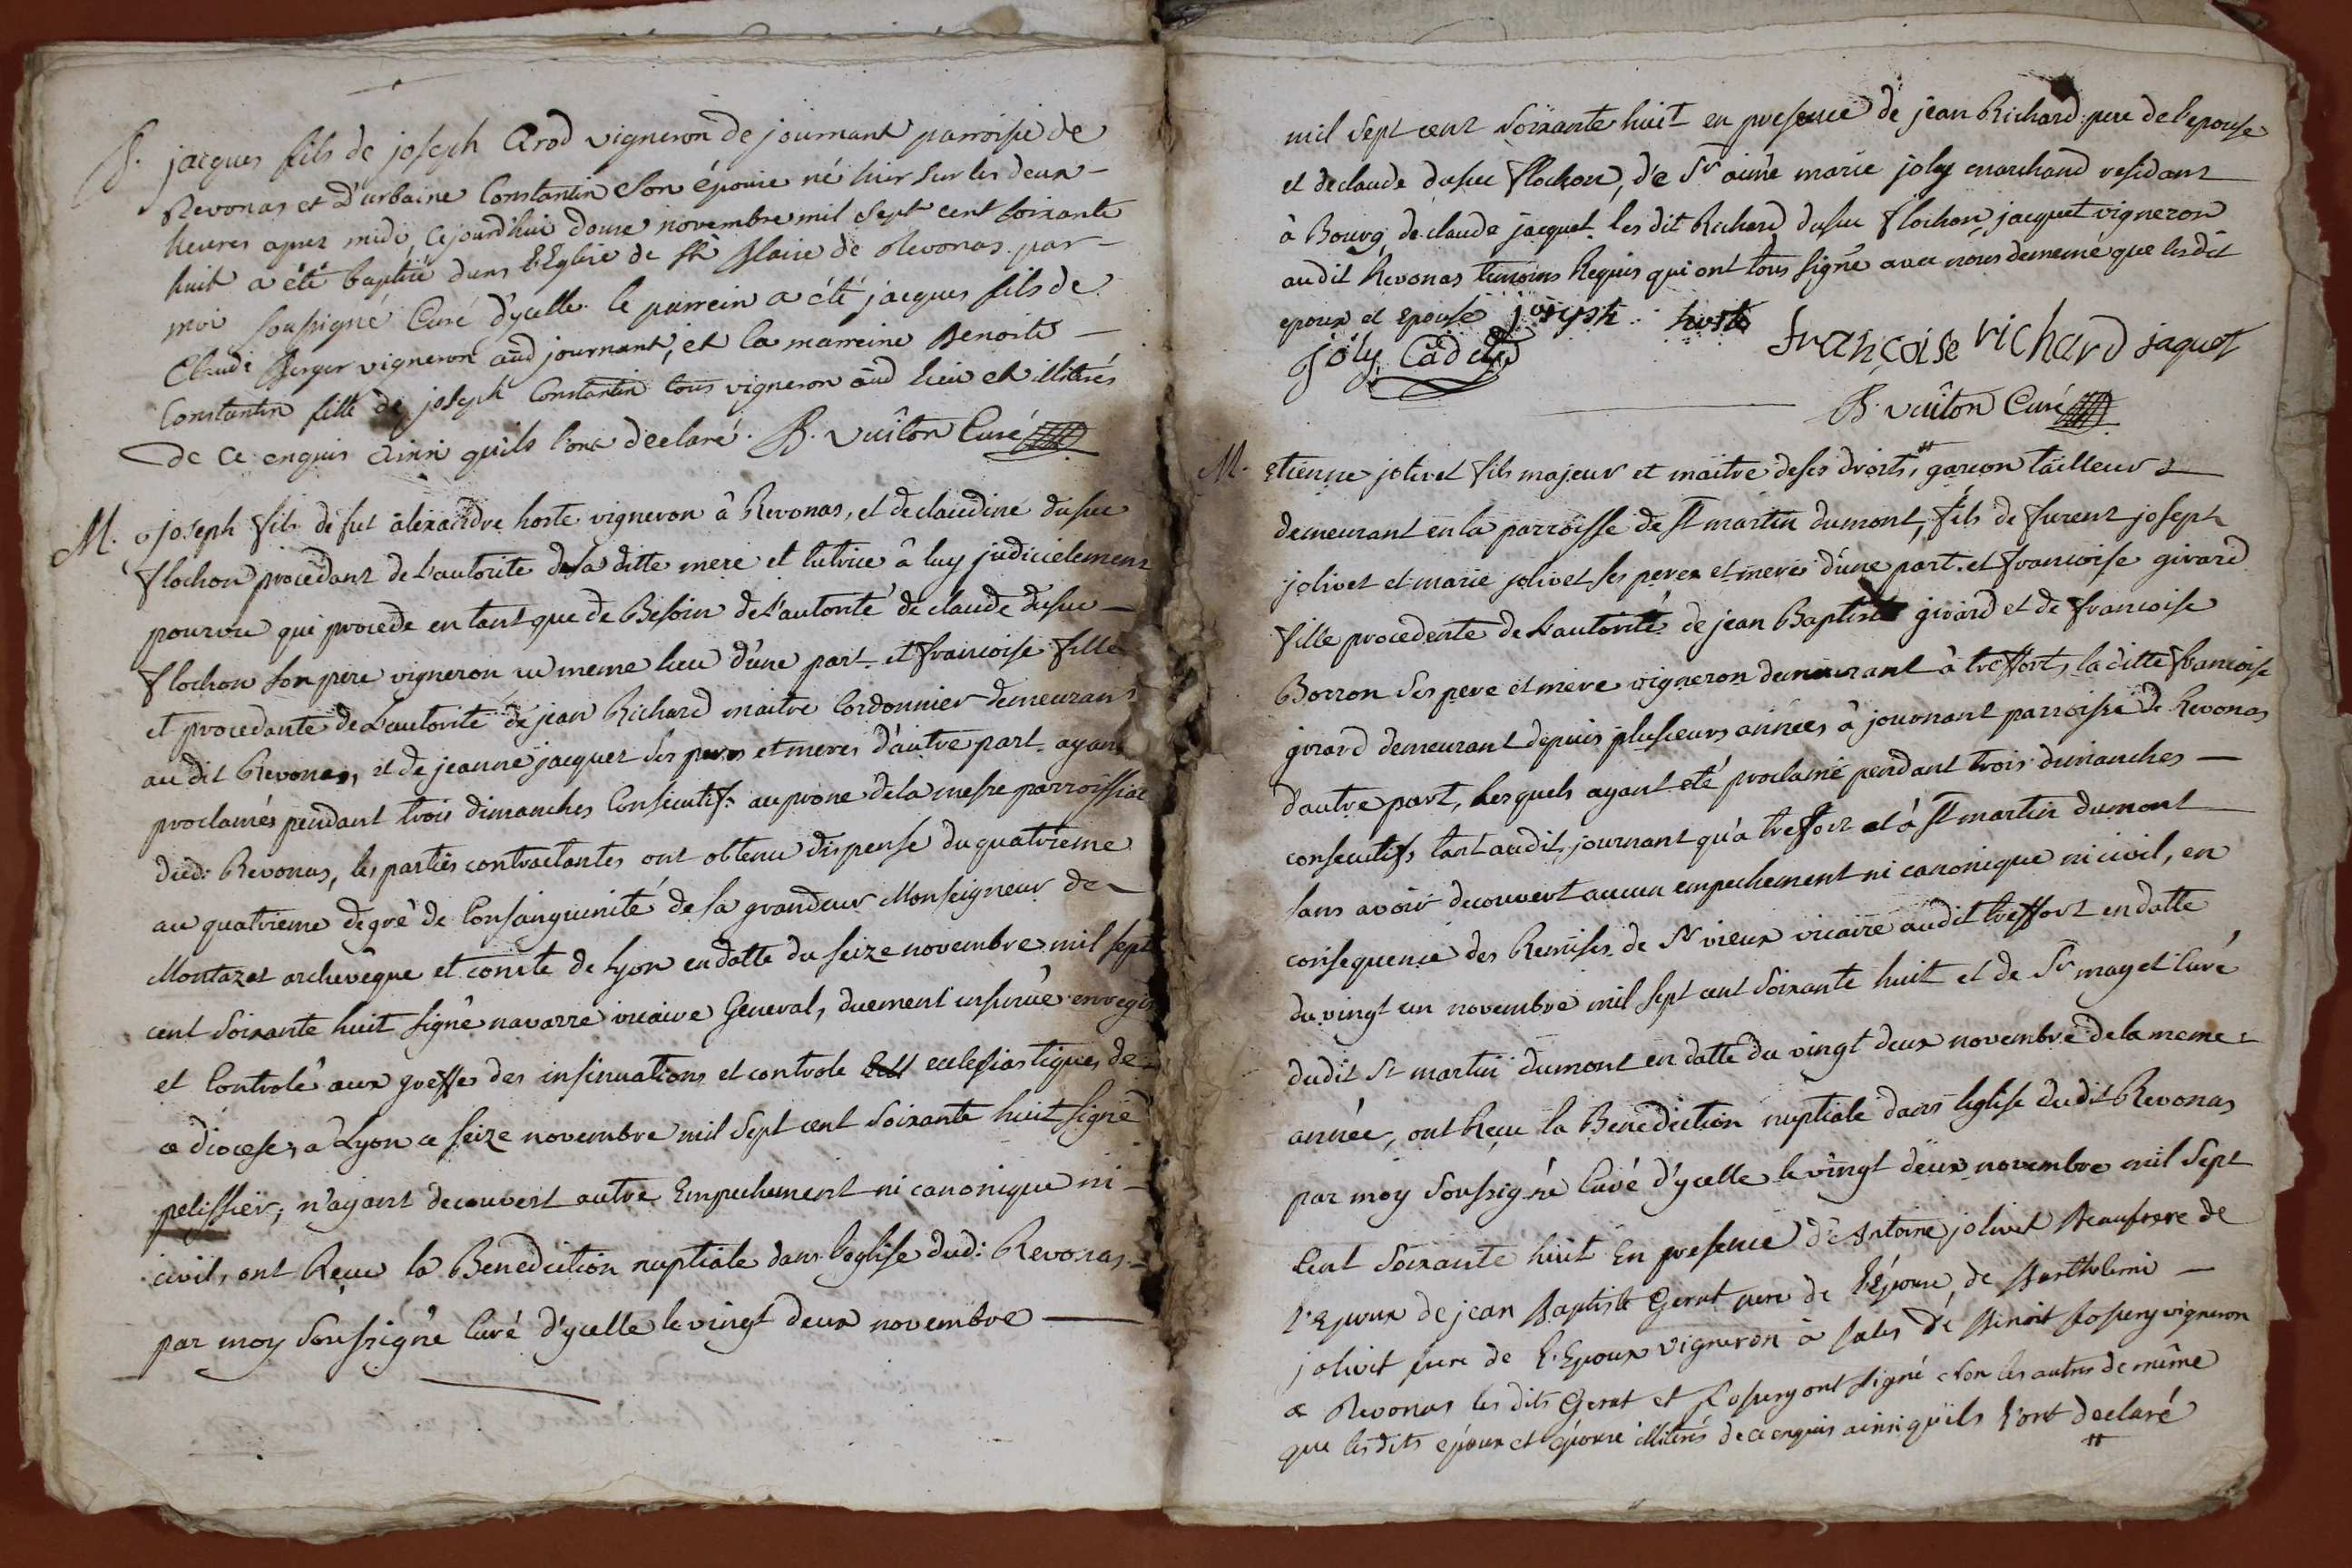 B. jacques fils de joseph Arod vigneron de journant parroisse de
Revonas et d'urbaine Constantin son épouse né hier sur les deux
heures apres midi, cejourd'hui douse novembre mil sept cent soixante
huit a été baptisé dans l'Eglise de st Blaise de Revonas par
moi soussigné Curé d'ycelle. le parrein a été jacques fils de
Claude Berger vigneron aud journant, et la marreine Benoite
Constantin fille de joseph Constantin tous vigneron aud lieu et illitérés
de ce enquis ainsi quils l'ont declaré. B. Vuiton Curé
M. joseph fils de fut aléxandre hoste vigneron à Revonas, et de claudine dusuc
flochon procédant de L'autorite de sa ditte mere et tutrice à luy judicielement
pourvu qui procede en tant que de Besoin de L'autorité de claude dusuc
flochon son pere vigneron au meme lieu d'une part et francoise fille
et procedante de L'autorité de jean Richard maitre Cordonnier demeurant
au dit Revonas, et de jeanne jacquet ses peres et meres d'autre part ayant
proclamés pendant trois dimanches Consécutifs au prone de la messe parroissiale
dud: Revonas, les parties contractantes ont obtenu dispense du quatrieme
au quatrieme degré de Consanguinité de sa grandeur Monseigneur de
Montazet archevêque et comte de Lyon en datte du seize novembre mil sept
cent soixante huit signé navarre vicaire General, duement insinuée enregis
et Controlé aux greffes des insinuations et controle ecclesiastiques de
ce diocese, a Lyon ce seize novembre mil sept cent soixante huit signé
pelissier, n'ayant decouvert autre Empechement ni canonique ni
civil, ont Reçu la Benediction nuptiale dans l'eglise dud: Revonas
par moy soussigné Curé d'ycelle le vingt deux novembre
mil sept cent soixante huit en presence de jean Richard pere de l'epouse
et de claude dusuc flochon, de Sr aimé marie joly marchand residant
à Bourg, de claude jacquet les dit Richard dusuc flochon jacquet vigneron
audit Revonas temoins Requis qui ont tous signé avec nous de meme que lesdit
epoux et epouse joseph hoste
françoise richard jaquet
joly Cadet
B. vuiton Curé
M. etienne jolivet fils majeur et maitre de ses droits, garcon tailleur
demeurant en la parroisse de St martin dumont, fils de furent joseph
jolivet et marie jolivet ses peres et meres d'une part. et francoise girard
fille procedente de L'autorité de jean Baptiste girard et de francoise
Borron ses pere et mere vigneron demeurant à treffort, la ditte francoise
girard demeurant depuis plusieurs années à journant parroisse de Revonas
d'autre part, Lesquels ayant eté proclamé pendant trois dimanches
consecutifs tant audit journant qu'a treffort et à St martin dumont
sans avoir decouvert aucun empechement ni canonique ni civil, en
consequence des Remises de Sr vieux vicaire audit treffort en datte
du vingt un novembre mil sept cent soixante huit et de Sr mayet Curé
dudit St martin dumont en datte du vingt deux novembre de la meme
année, ont Reçu la Benediction nuptiale dans leglise dudit Revonas
par moy soussigné Curé d'ycelle le vingt deux novembre mil sept
Cent soixante huit En presence d'Antoine jolivet Beaufrere de
l'Epoux de jean Baptiste Gerat pere de l'épouse, de Bartholemi
jolivet frere de l'Epoux vigneron à sales de Benoit vigneron
a Revonas les dits Gerat et ont signé non les autres de même
que lesdits époux et épouse illitérés de ce enquis ainsi qu'ils l'ont declaré